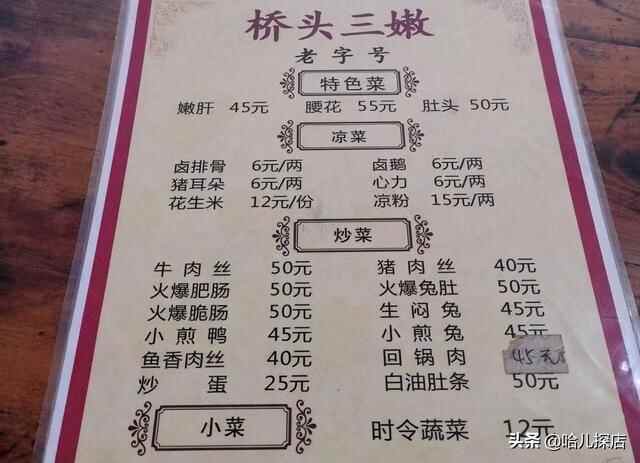 桥头三嫩
老字号
特色菜
嫩肝 45元 腰花 55元 肚头 50元
凉菜
卤排骨 6元/两 卤鹅 6元/两
猪耳朵 6元/两 心力 6元/两
花生米 12元/份 凉粉 15元/两
炒菜
牛肉丝 50元 猪肉丝 40元
火爆肥肠 50元 火爆兔肚 50元
火爆脆肠 50元 生焖兔 45元
小煎鸭 45元 小煎兔 45元
鱼香肉丝 40元 回锅肉 45元
炒蛋 25元 白油肚条 50元
小菜 时令蔬菜 12元
头条 @哈儿探店